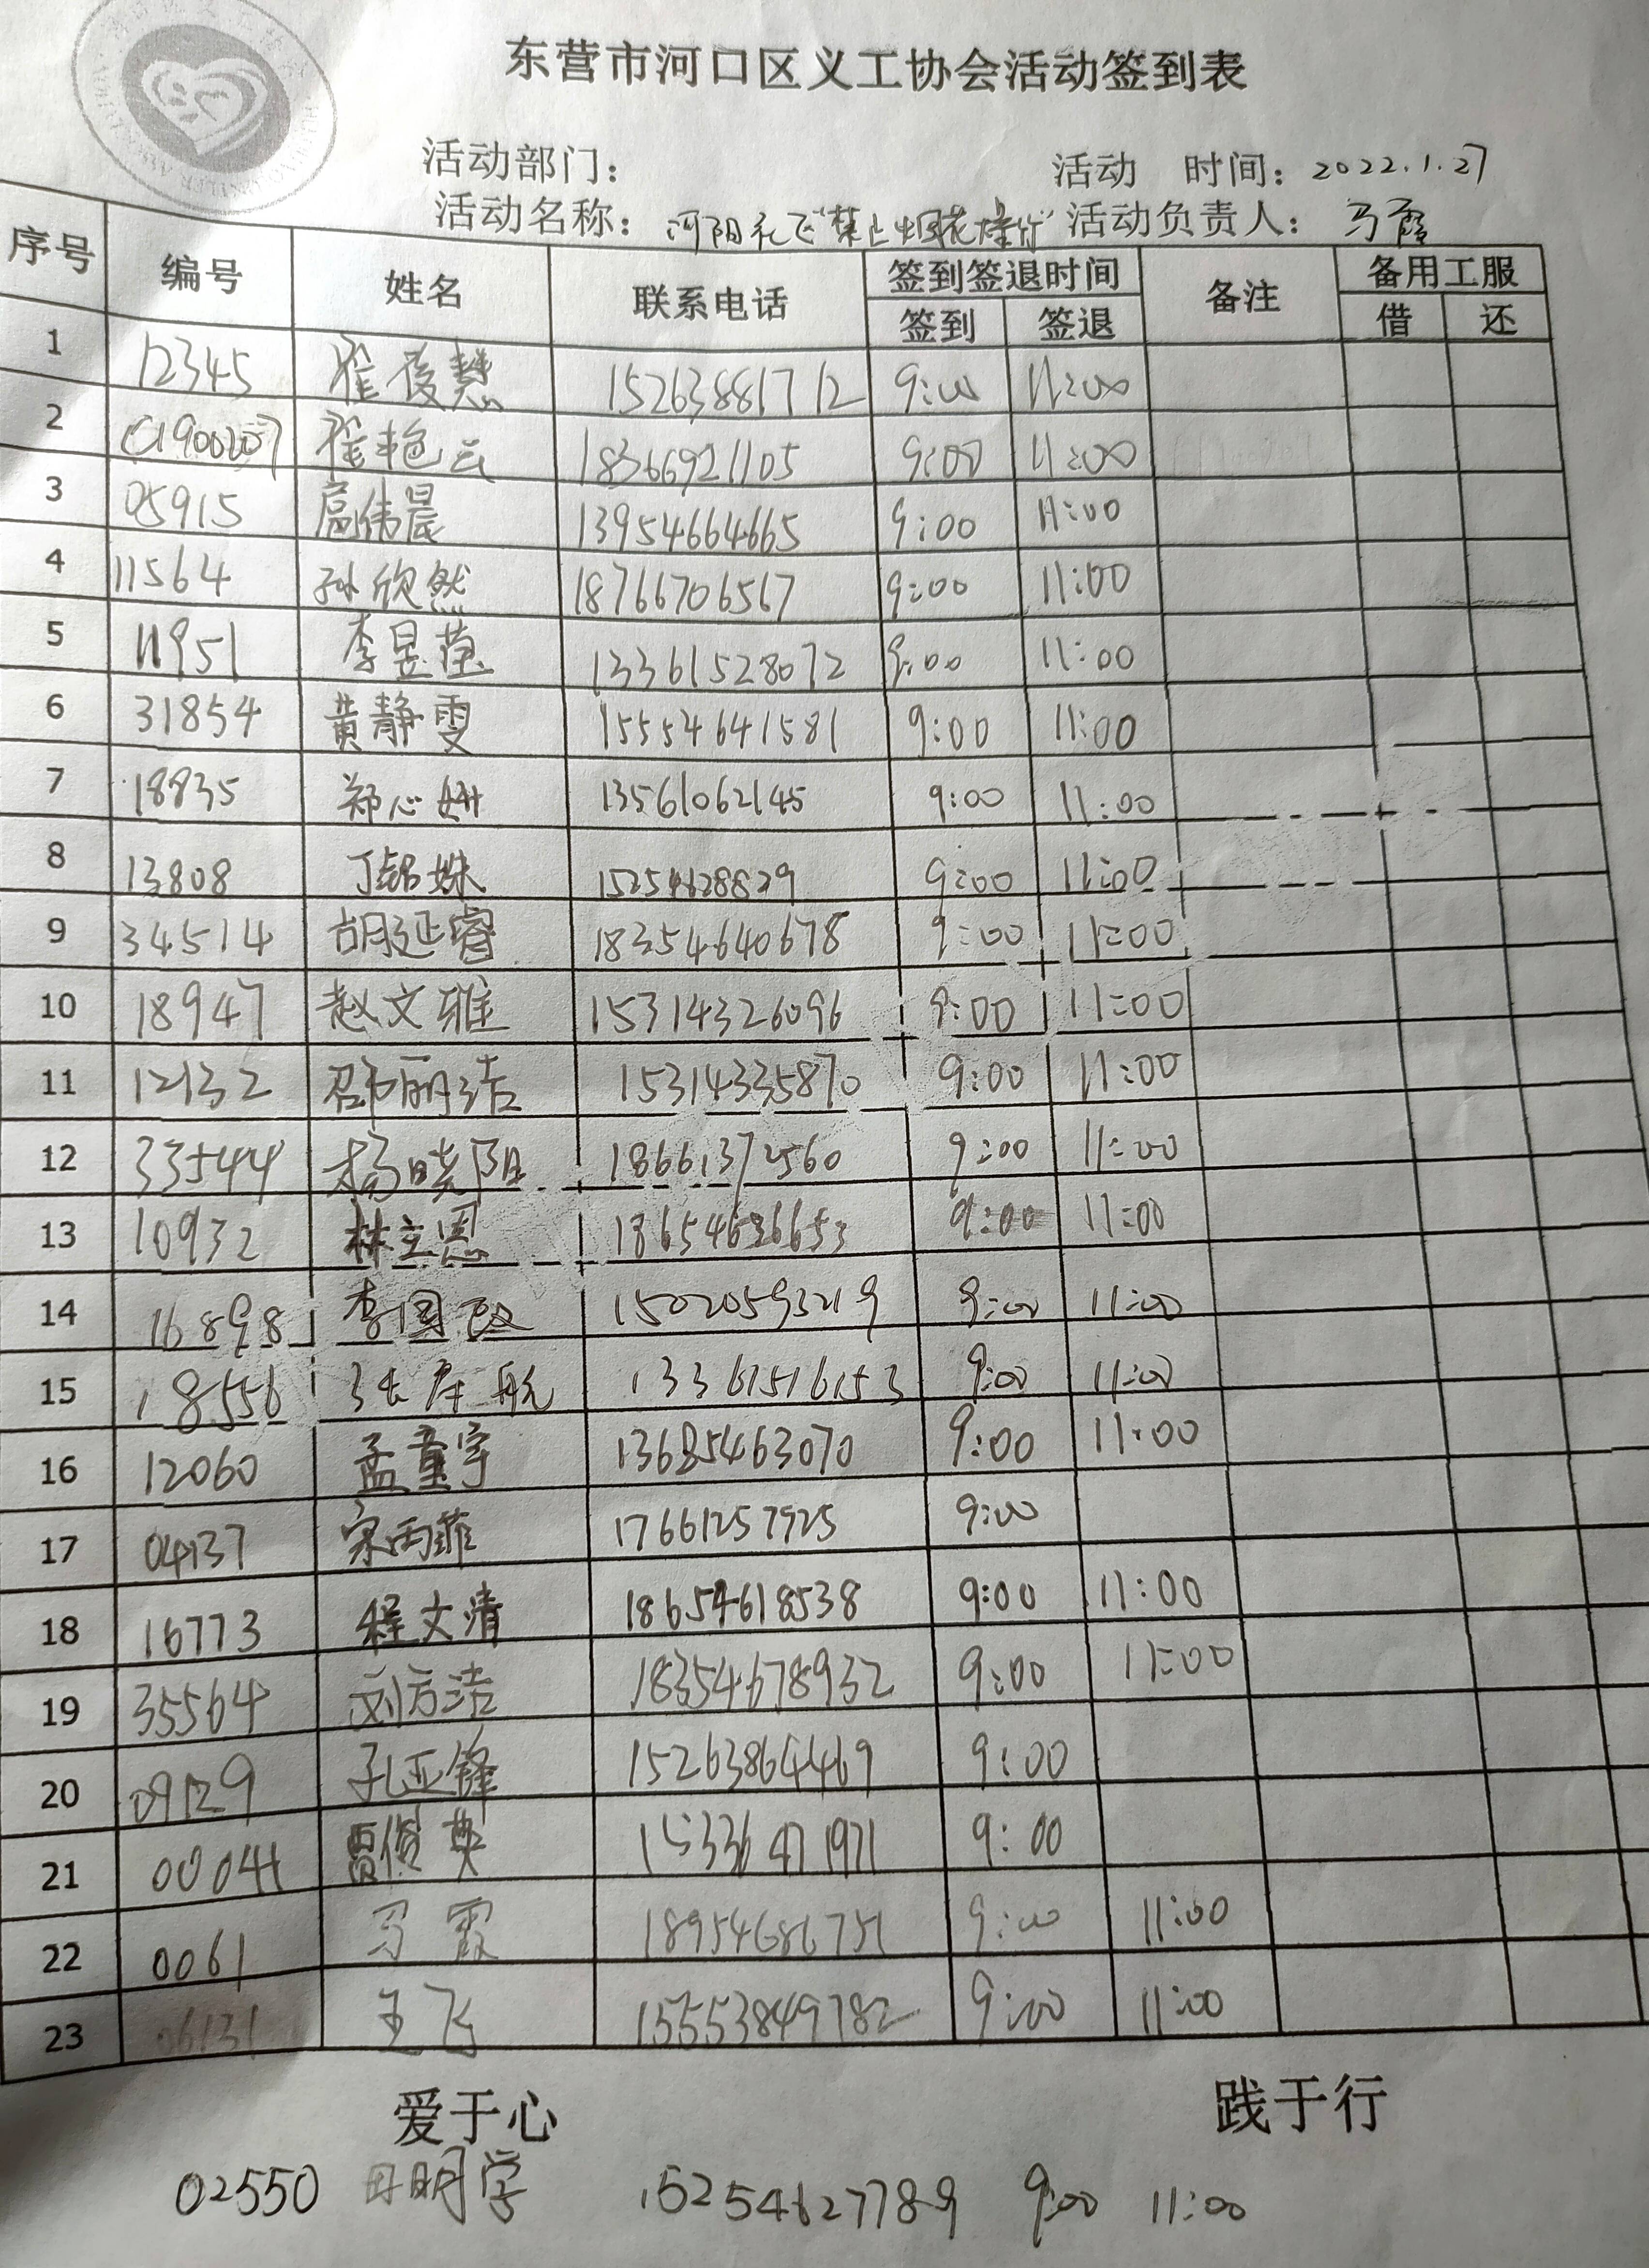 东营市河口区义工协会活动签到表
活动部门： 活动 时间：2022.1.27
活动名称：河阳 "禁止烟花 " 活动负责人：马霞
序号 编号 姓名 联系电话 签到签退时间 备注 备用工服
签到 签退 借 还
1 12345 崔 慧 15263881712 9:00 11:00
2 崔艳云 18366921105 9:00 11:00
3 05915 扈伟晨 13954664665 9:00 11:00
4 11564 孙欣然 18766706567 9:00 11:00
5 11951 李昱莹 13361528072 9:00 11:00
6 31854 黄静雯 15554641581 9:00 11:00
7 18835 郑心妍 13561062145 9:00 11:00
8 13808 丁 姝 15254628829 9:00 11:00
9 34514 胡延睿 18354640678 9:00 11:00
10 18947 赵文雅 15314326096 9:00 11:00
11 12132 邵丽洁 15314335870 9:00 11:00
12 33544 杨晓阳 18661372560 9:00 11:00
13 10932 林立恩 18654636653 9:00 11:00
14 16898 李国政 15020593219 9:00 11:00
15 18556 张序航 13361516153 9:00 11:00
16 12060 孟童宇 13685463070 9:00 11:00
17 04137 宋雨菲 17661257925 9:00
18 16773 程文清 18654618538 9:00 11:00
19 35564 刘方洁 18354678932 9:00 11:00
20 09129 孔亚锋 15263864469 9:00
21 00041 贾俊英 15336471971 9:00
22 0061 马霞 18954686751 9:00 11:00
23 06131 王飞 15553849782 9:00 11:00
爱于心 践于行
02550 田明学 15254627789 9:00 11:00